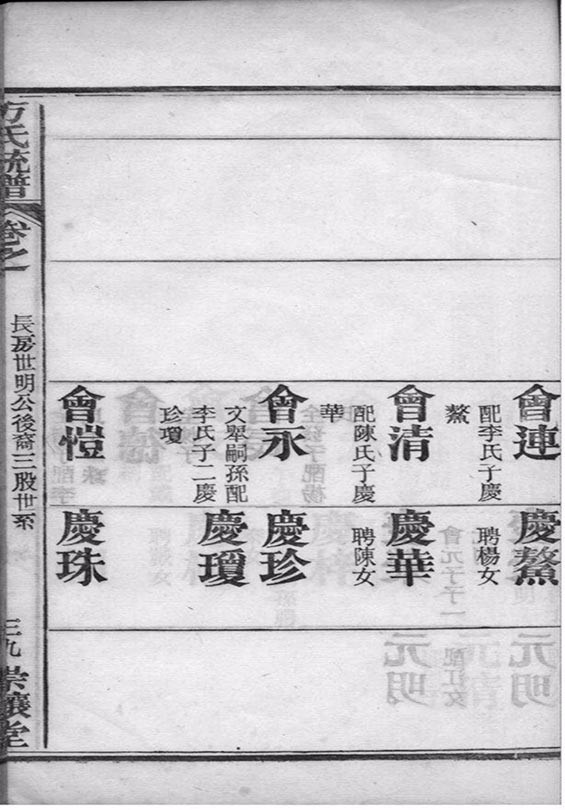 會連
配李氏子慶
鰲
會清
配陳氏子慶
華
會永
文犖嗣孫配
李氏子二慶
珍瓊
會愷
慶鰲
聘楊女
慶華
聘陳女
慶珍
慶瓊
慶珠
方氏統譜
卷之一
長房世明公後裔三股世系
三九
崇讓堂